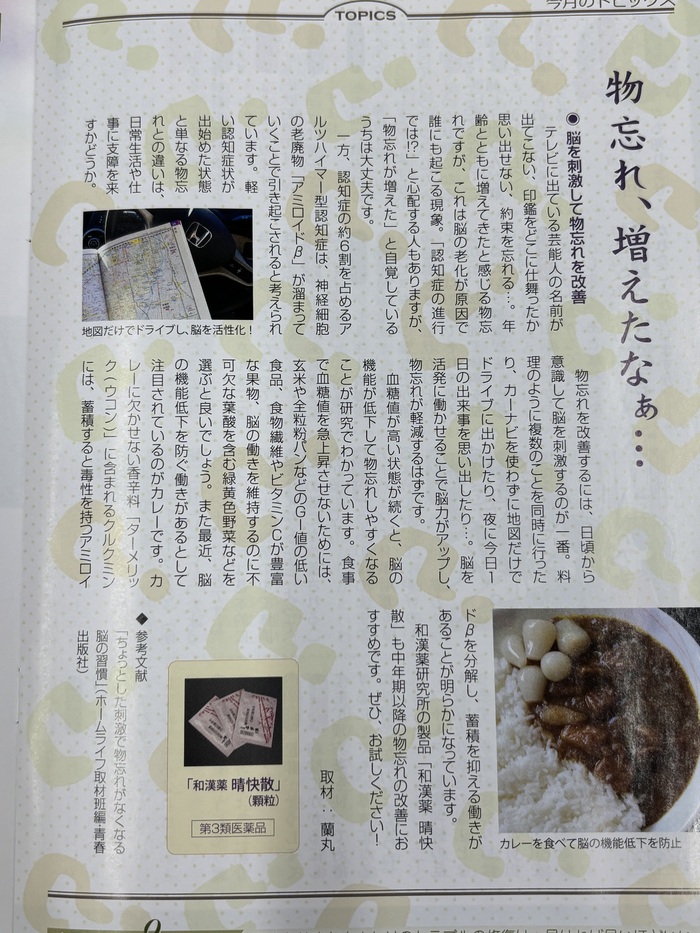 TOPICS
今月のトピックス
物忘れ、増えたなぁ…
●脳を刺激して物忘れを改善
テレビに出ている芸能人の名前が
出てこない、印鑑をどこに仕舞ったか
思い出せない、約束を忘れる…。年
齢とともに増えてきたと感じる物忘
れですが、これは脳の老化が原因で
誰にも起こる現象。「認知症の進行
では!?」と心配する人もありますが、
「物忘れが増えた」と自覚している
うちは大丈夫です。
一方、認知症の約6割を占めるア
ルツハイマー型認知症は、神経細胞
の老廃物「アミロイドβ」が溜まって
いくことで引き起こされると考えられ
ています。軽
い認知症状が
出始めた状態
と単なる物忘
れとの違いは、
日常生活や仕
事に支障を来
すかどうか。
地図だけでドライブし、脳を活性化！
物忘れを改善するには、日頃から
意識して脳を刺激するのが一番。料
理のように複数のことを同時に行った
り、カーナビを使わずに地図だけで
ドライブに出かけたり、夜に今日1
日の出来事を思い出したり…。脳を
活発に働かせることで脳力がアップし、
物忘れが軽減するはずです。
血糖値が高い状態が続くと、脳の
機能が低下して物忘れしやすくなる
ことが研究でわかっています。食事
で血糖値を急上昇させないためには、
玄米や全粒粉パンなどのGI値の低い
食品、食物繊維やビタミンCが豊富
な果物、脳の働きを維持するのに不
可欠な葉酸を含む緑黄色野菜などを
選ぶと良いでしょう。また最近、脳
の機能低下を防ぐ働きがあるとして
注目されているのがカレーです。カ
レーに欠かせない香辛料「ターメリッ
ク（ウコン）」に含まれるクルクミン
には、蓄積すると毒性を持つアミロイ
ドβを分解し、蓄積を抑える働きが
あることが明らかになっています。
和漢薬研究所の製品「和漢薬 晴快
散」も中年期以降の物忘れの改善にお
すすめです。ぜひ、お試しください！
取材：蘭丸
カレーを食べて脳の機能低下を防止
「和漢薬 晴快散」
（顆粒）
第3類医薬品
◆参考文献
「ちょっとした刺激で物忘れがなくなる
脳の習慣」（ホームライフ取材班編・青春
出版社）